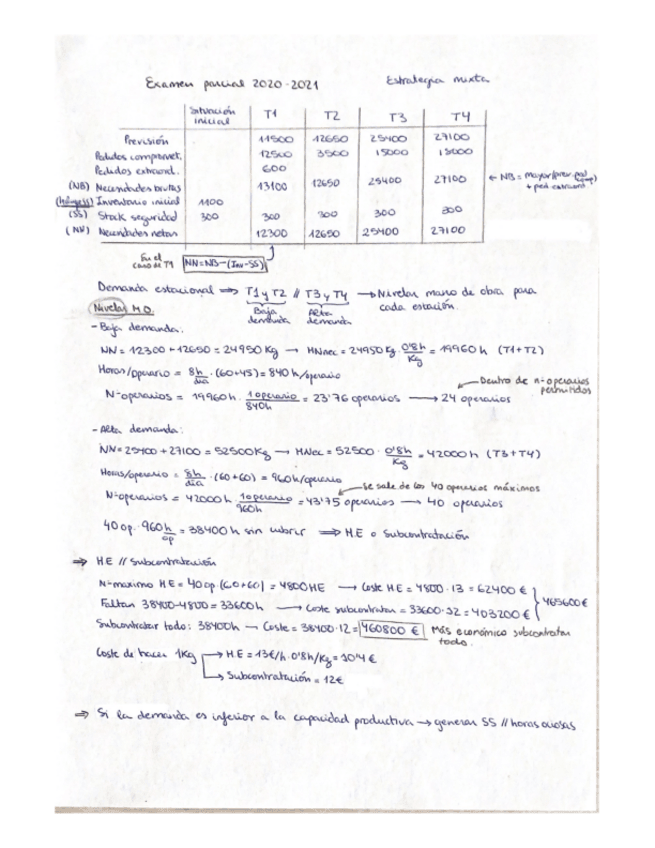 Examen parcial 2020-2021 Estrategia mixta
Situación inicial T1 T2 T3 T4
Previsión 11500 12650 25400 27100
Pedidos compromet. 12500 3500 15000 15000
Pedidos extraord. 600
(NB) Necesidades brutas 13100 12650 25400 27100 ← NB = mayor(prev, ped comp) + ped extraord.
Inventario inicial 1100
(SS) Stock seguridad 300 300 300 300 300
(NN) Necesidades netas 12300 12650 25400 27100
En el caso de T1 NN=NB-(Inv-SS)
Demanda estacional ⇒ T1 y T2 // T3 y T4 → Nivelar mano de obra para cada estación.
Baja demanda Alta demanda
Nivelar M.O.
- Baja demanda:
NN = 12300 + 12650 = 24950 Kg → HNnec = 24950 Kg · 0'8h/Kg = 19960 h (T1+T2)
Horas/operario = 8h/día · (60+45) = 840 h/operario
Nº operarios = 19960 h · 1 operario/840h = 23'76 operarios → 24 operarios
Dentro de nº operarios permitidos
- Alta demanda:
NN = 25400 + 27100 = 52500 Kg → HNec = 52500 · 0'8h/Kg = 42000 h (T3+T4)
Horas/operario = 8h/día · (60+60) = 960 h/operario
Se sale de los 40 operarios máximos
Nº operarios = 42000 h · 1 operario/960h = 43'75 operarios → 40 operarios
40 op. · 960 h/op = 38400 h sin cubrir ⇒ H.E o Subcontratación
⇒ HE // Subcontratación
Nº maximo HE = 40 op · (60+60) = 4800 HE → Coste HE = 4800 · 13 = 62400 €
Faltan 38400-4800 = 33600 h → Coste subcontratar = 33600 · 12 = 403200 € } 465600 €
Subcontratar todo: 38400h → Coste = 38400 · 12 = 460800 € Más económico subcontratar todo.
Coste de hacer 1Kg → H.E = 13€/h · 0'8h/Kg = 10'4 €
→ Subcontratación = 12€
⇒ Si la demanda es inferior a la capacidad productiva → generar SS // horas ociosas